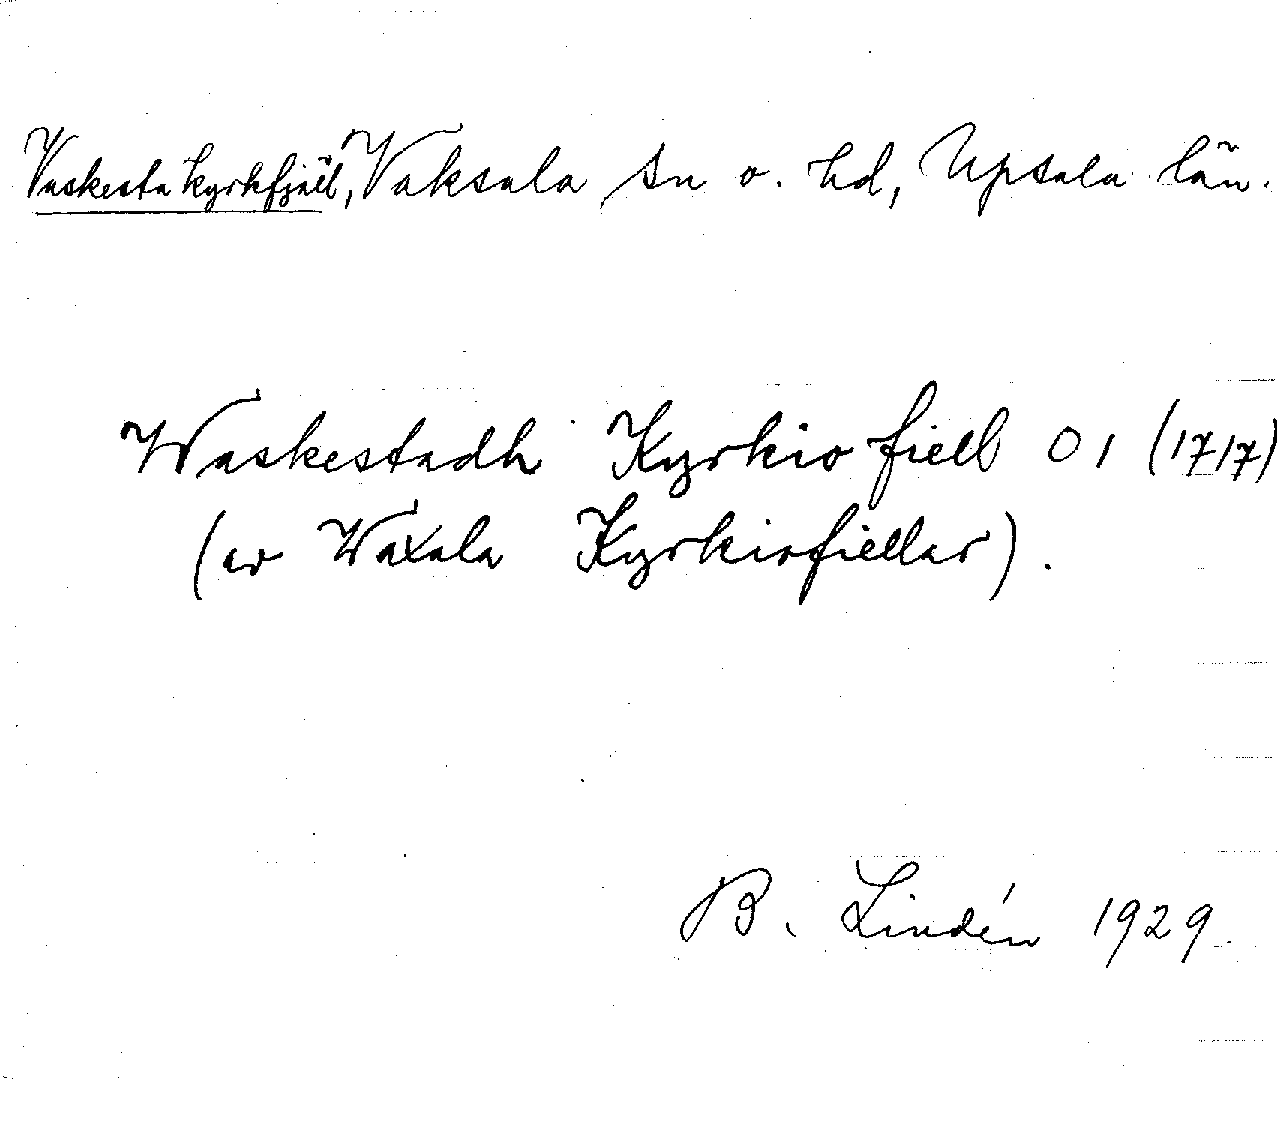 Vaskesta kyrkfjäll, Vaksala sn o. hd, Upsala län.
Waskestadh Kyrkiofiell 01 (1717)
(w Waxala Kyrkiofiellar).
B. Lindén 1929.